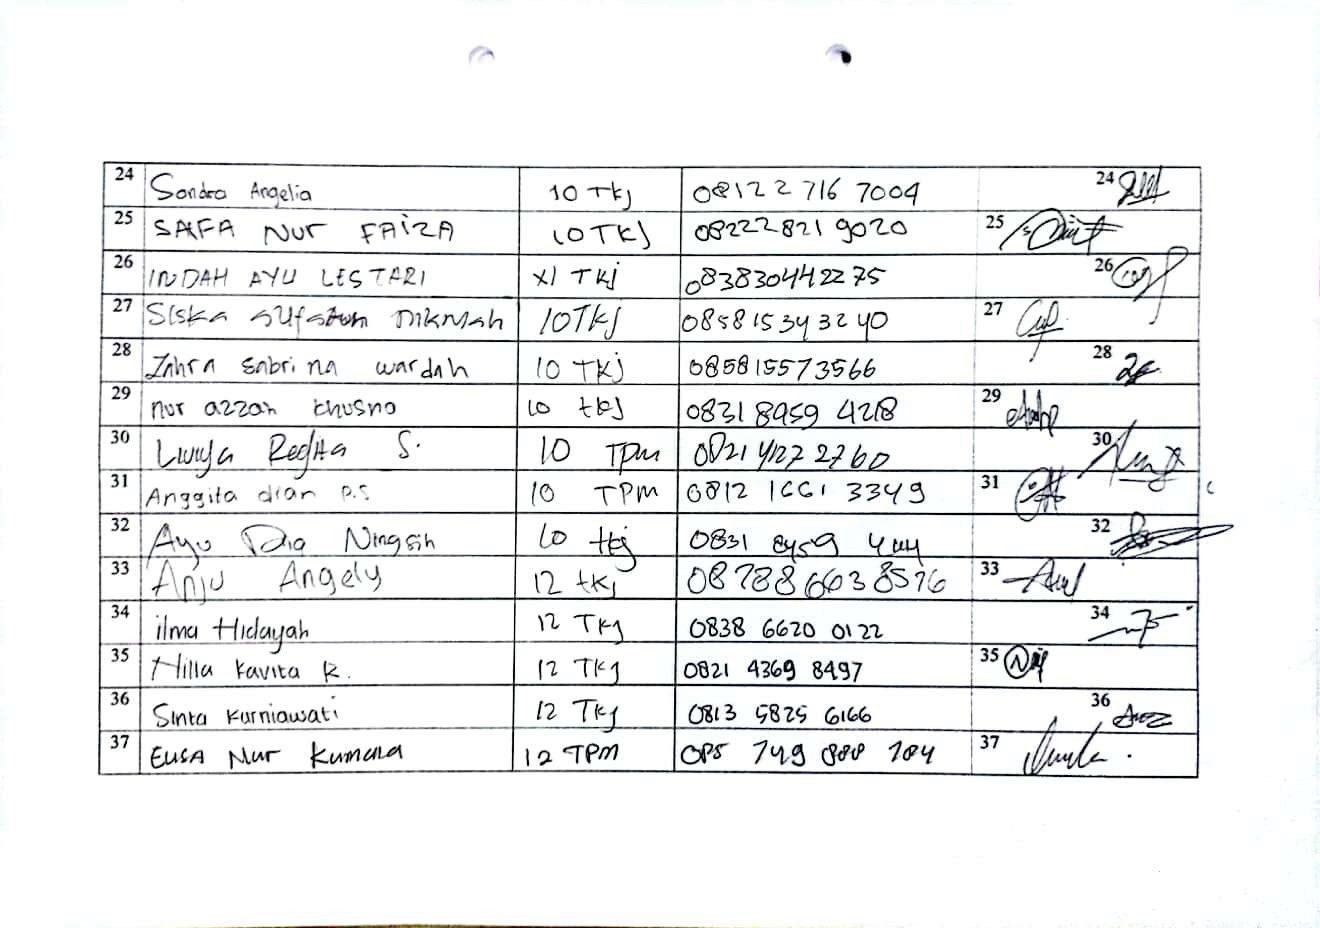 24 Sandra Angelia 10 TKj 08122 716 7009 24
25 SAFA NUr FAiZA 10 TKJ 08222821 9020 25
26 INDAH AYU LESTARI XI TKj 083830442275 26
27 Siska 10TKJ 085815343240 27
28 Zahra Sabrina wardah 10 TKj 085815573566 28
29 nur azzah khusno 10 tKJ 0831 8959 4218 29
30 S. 10 TPM 30
31 Anggita dian P.S 10 TPM 0812 1661 3349 31
32 Ayu Dia Ningsih 10 tkj 0831 8459 32
33 Anju Angely 12 tkj 33
34 ilma Hidayah 12 TKJ 0838 6620 0122 34
35 Nilla Kavita R. 12 TKJ 0821 4369 8497 35
36 Sinta Kurniawati 12 TKJ 0813 5825 6166 36
37 Nur Kumala 12 TPM 37